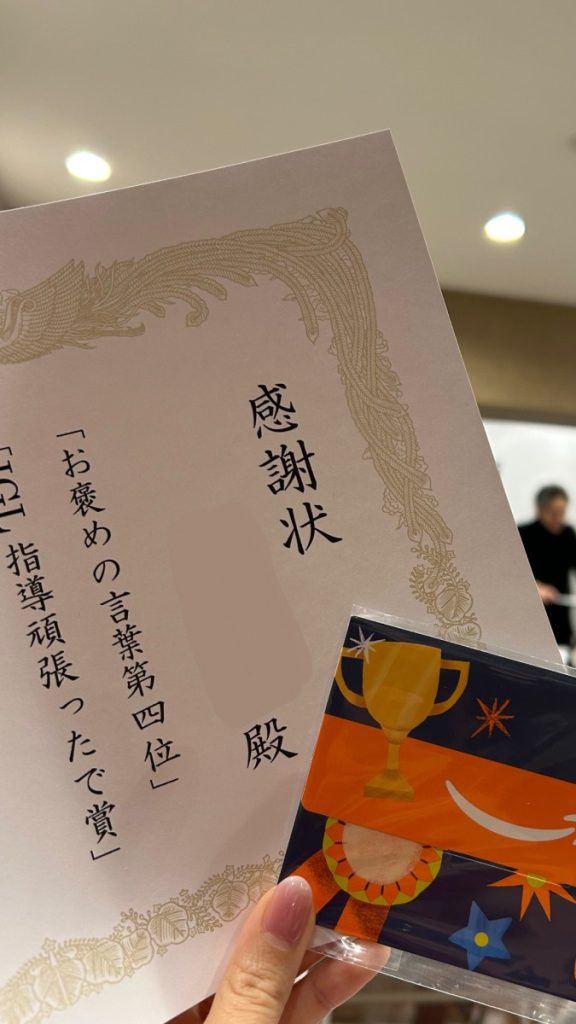 感謝状
殿
「お褒めの言葉第四位」
指導頑張ったで賞」